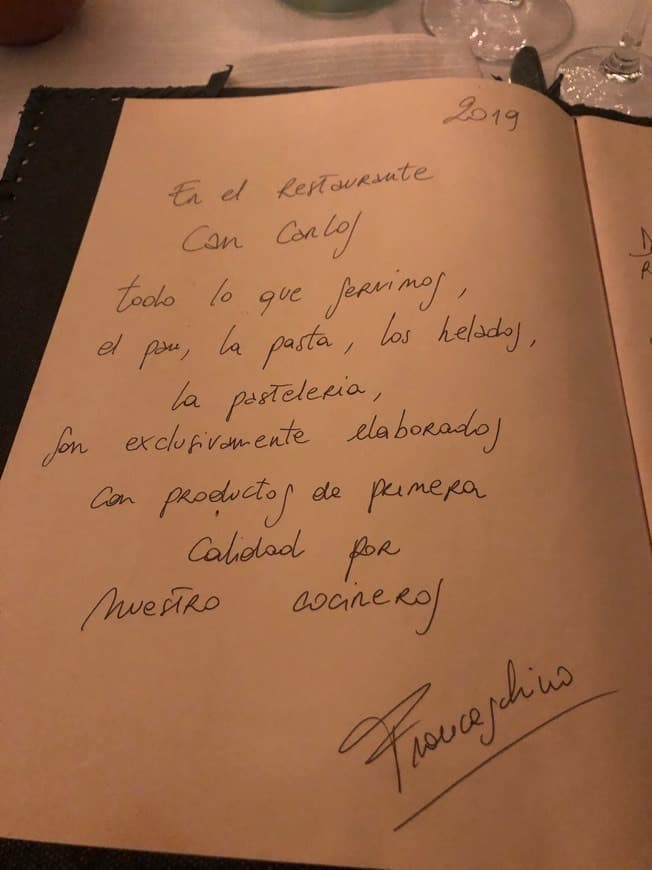 2019
En el Restaurante
Can Carlos
todo lo que servimos,
el pan, la pasta, los helados,
la pasteleria,
son exclusivamente elaborados
con productos de primera
calidad por
nuestro cocineros
Franceschino